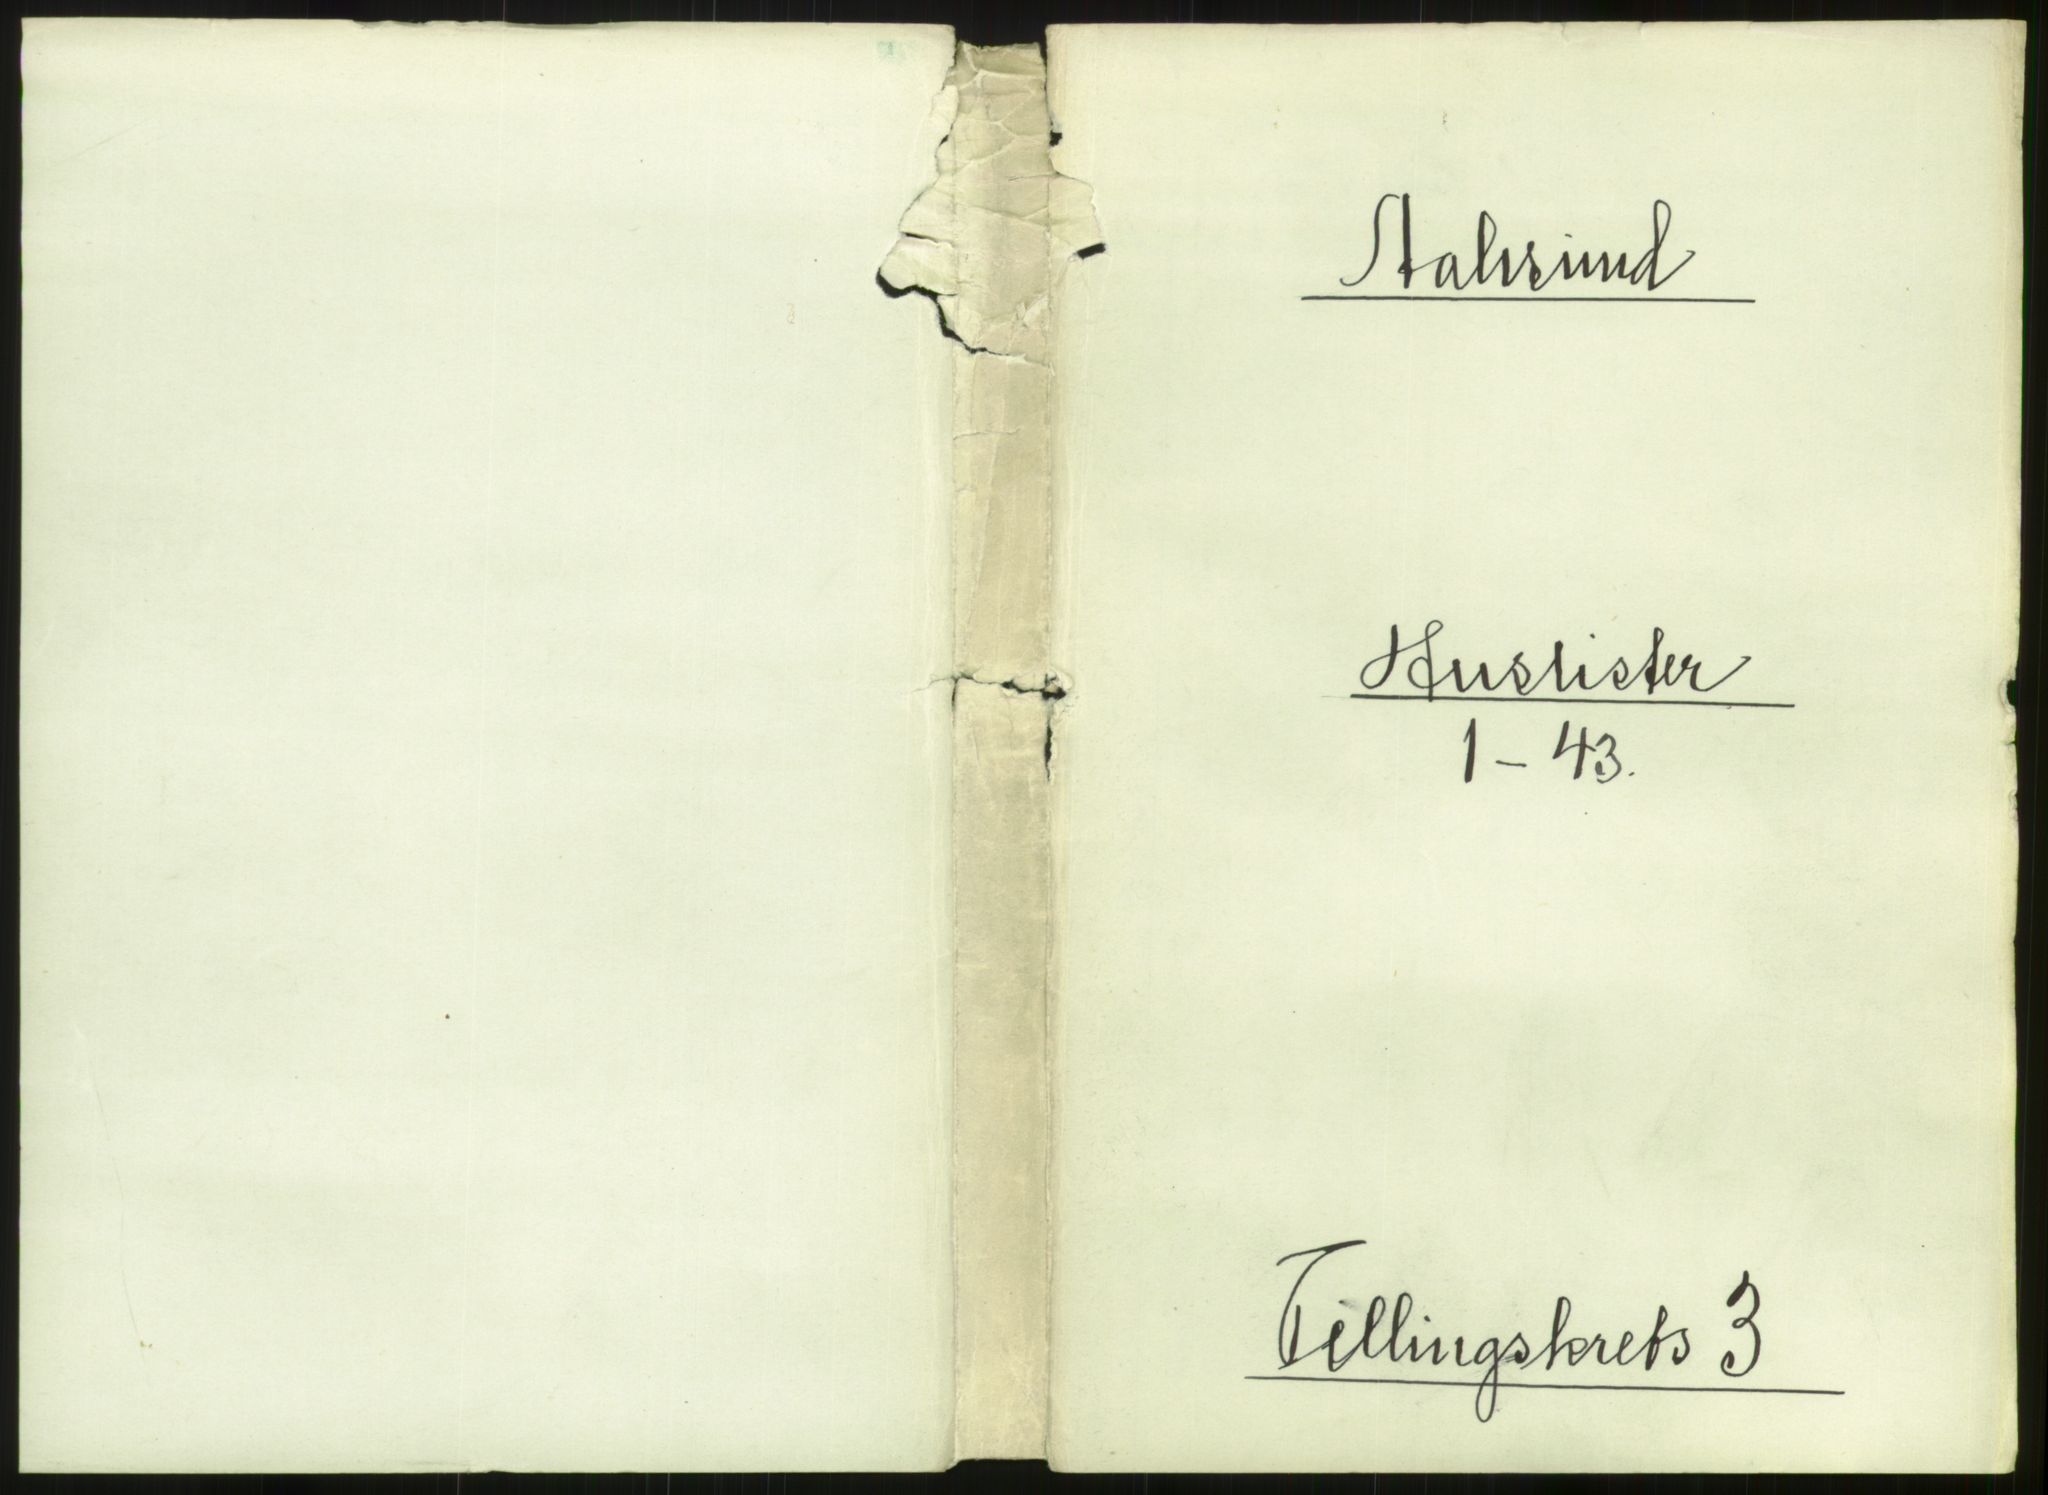 Aalesund
Huslister
1 - 43.
Tellingskrets 3